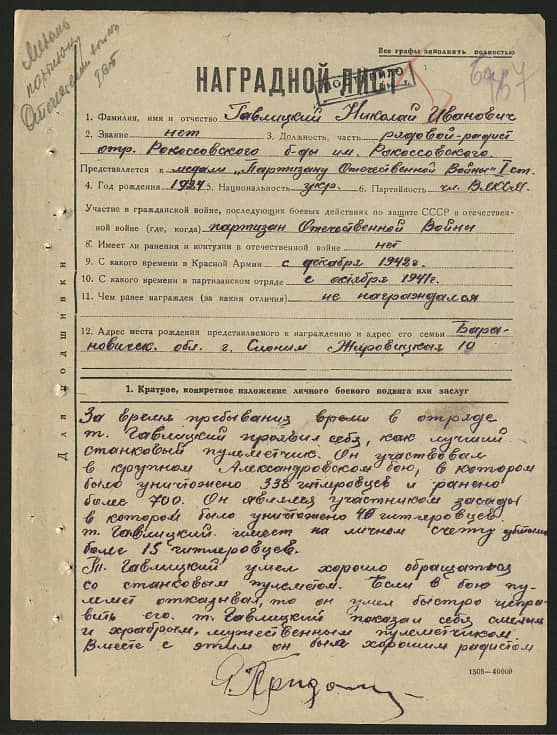 Медаль
партизану
Отечественной войны
I ст
Все графы заполнять полностью
НАГРАДНОЙ ЛИСТ
1. Фамилия, имя и отчество Гавлицкий Николай Иванович
2. Звание нет 3. Должность, часть рядовой-радист
отр. Рокоссовского б-ды им. Рокоссовского.
Представляется к медали „Партизану Отечественной Войны" I ст.
4. Год рождения 1924 5. Национальность укр. 6. Партийность чл. ВЛКСМ.
Участие в гражданской войне, последующих боевых действиях по защите СССР в отечествен-
ной войне (где, когда) партизан Отечественной Войны
8. Имеет ли ранения и контузии в отечественной войне нет
9. С какого времени в Красной Армии с декабря 1942г.
10. С какого времени в партизанском отряде с октября 1941г.
11. Чем ранее награжден (за какия отличия) не награждался
12. Адрес места рождения представляемого к награждению и адрес его семьи Бара-
новическ. обл. г. Слоним Жировицкая 10
Для подшивки
1. Краткое, конкретное изложение личного боевого подвига или заслуг
За время пребывания время в отряде
т. Гавлицкий проявил себя, как лучший
станковый пулеметчик. Он участвовал
в крупном Александровском бою, в котором
было уничтожено 338 гитлеровцев и ранено
более 700. Он являлся участником засады
в котором было уничтожено 40 гитлеровцев.
т. Гавлицкий имеет на личном счету убитыми
более 15 гитлеровцев.
Т. Гавлицкий умел хорошо обращаться
со станковым пулеметом. Если в бою пу-
лемет отказывал, то он умел быстро испра-
вить его. т. Гавлицкий показал себя смелым
и храбрым, мужественным пулеметчиком.
Вместе с этим он был хорошим радистом
1505-40000